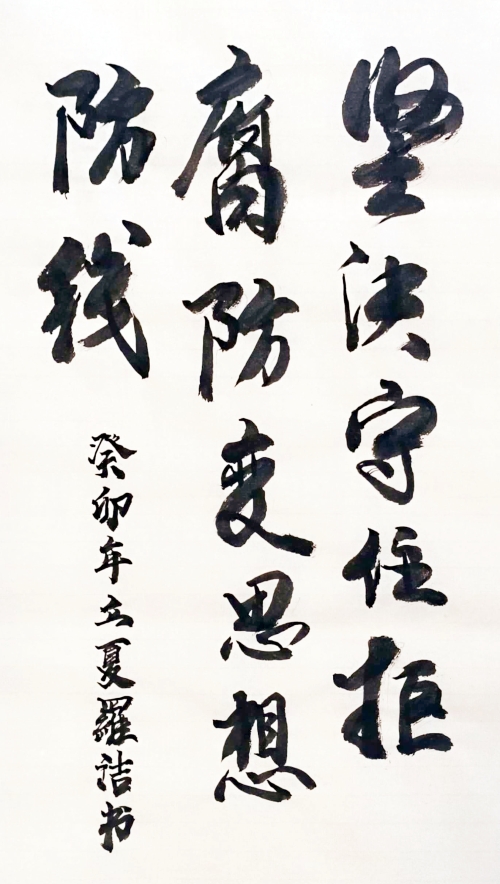 坚决守住拒
腐防变思想
防线
癸卯年立夏羅诘书